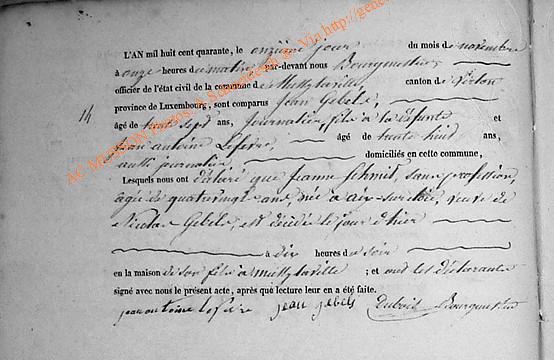 L'AN mil huit cent quarante, le onzième jour du mois de novembre
à onze heures du matin par-devant nous Bourgmestre
officier de l'état civil de la commune de Mussy-la-ville, canton de Virton
province de Luxembourg, sont comparus Jean Gebels,
14
âgé de trente sept ans, journalier, fils à la défunte et
Jean antoine Lefevre âgé de trente huit ans,
aussi journalier domiciliés en cette commune,
Lesquels nous ont déclaré que Jeanne Schmit sans profession
agée de quatrevingt ans, née à aix-sur-cloie, veuve de
Nicolas Gebels, est décédée le jour d'hier
à dix heures du soir
en la maison de son fils à mussy la ville ; et ont les déclarants
signé avec nous le présent acte, après que lecture leur en a été faite.
jean antoine lefevre jean gebels Dubois Bourgmestre